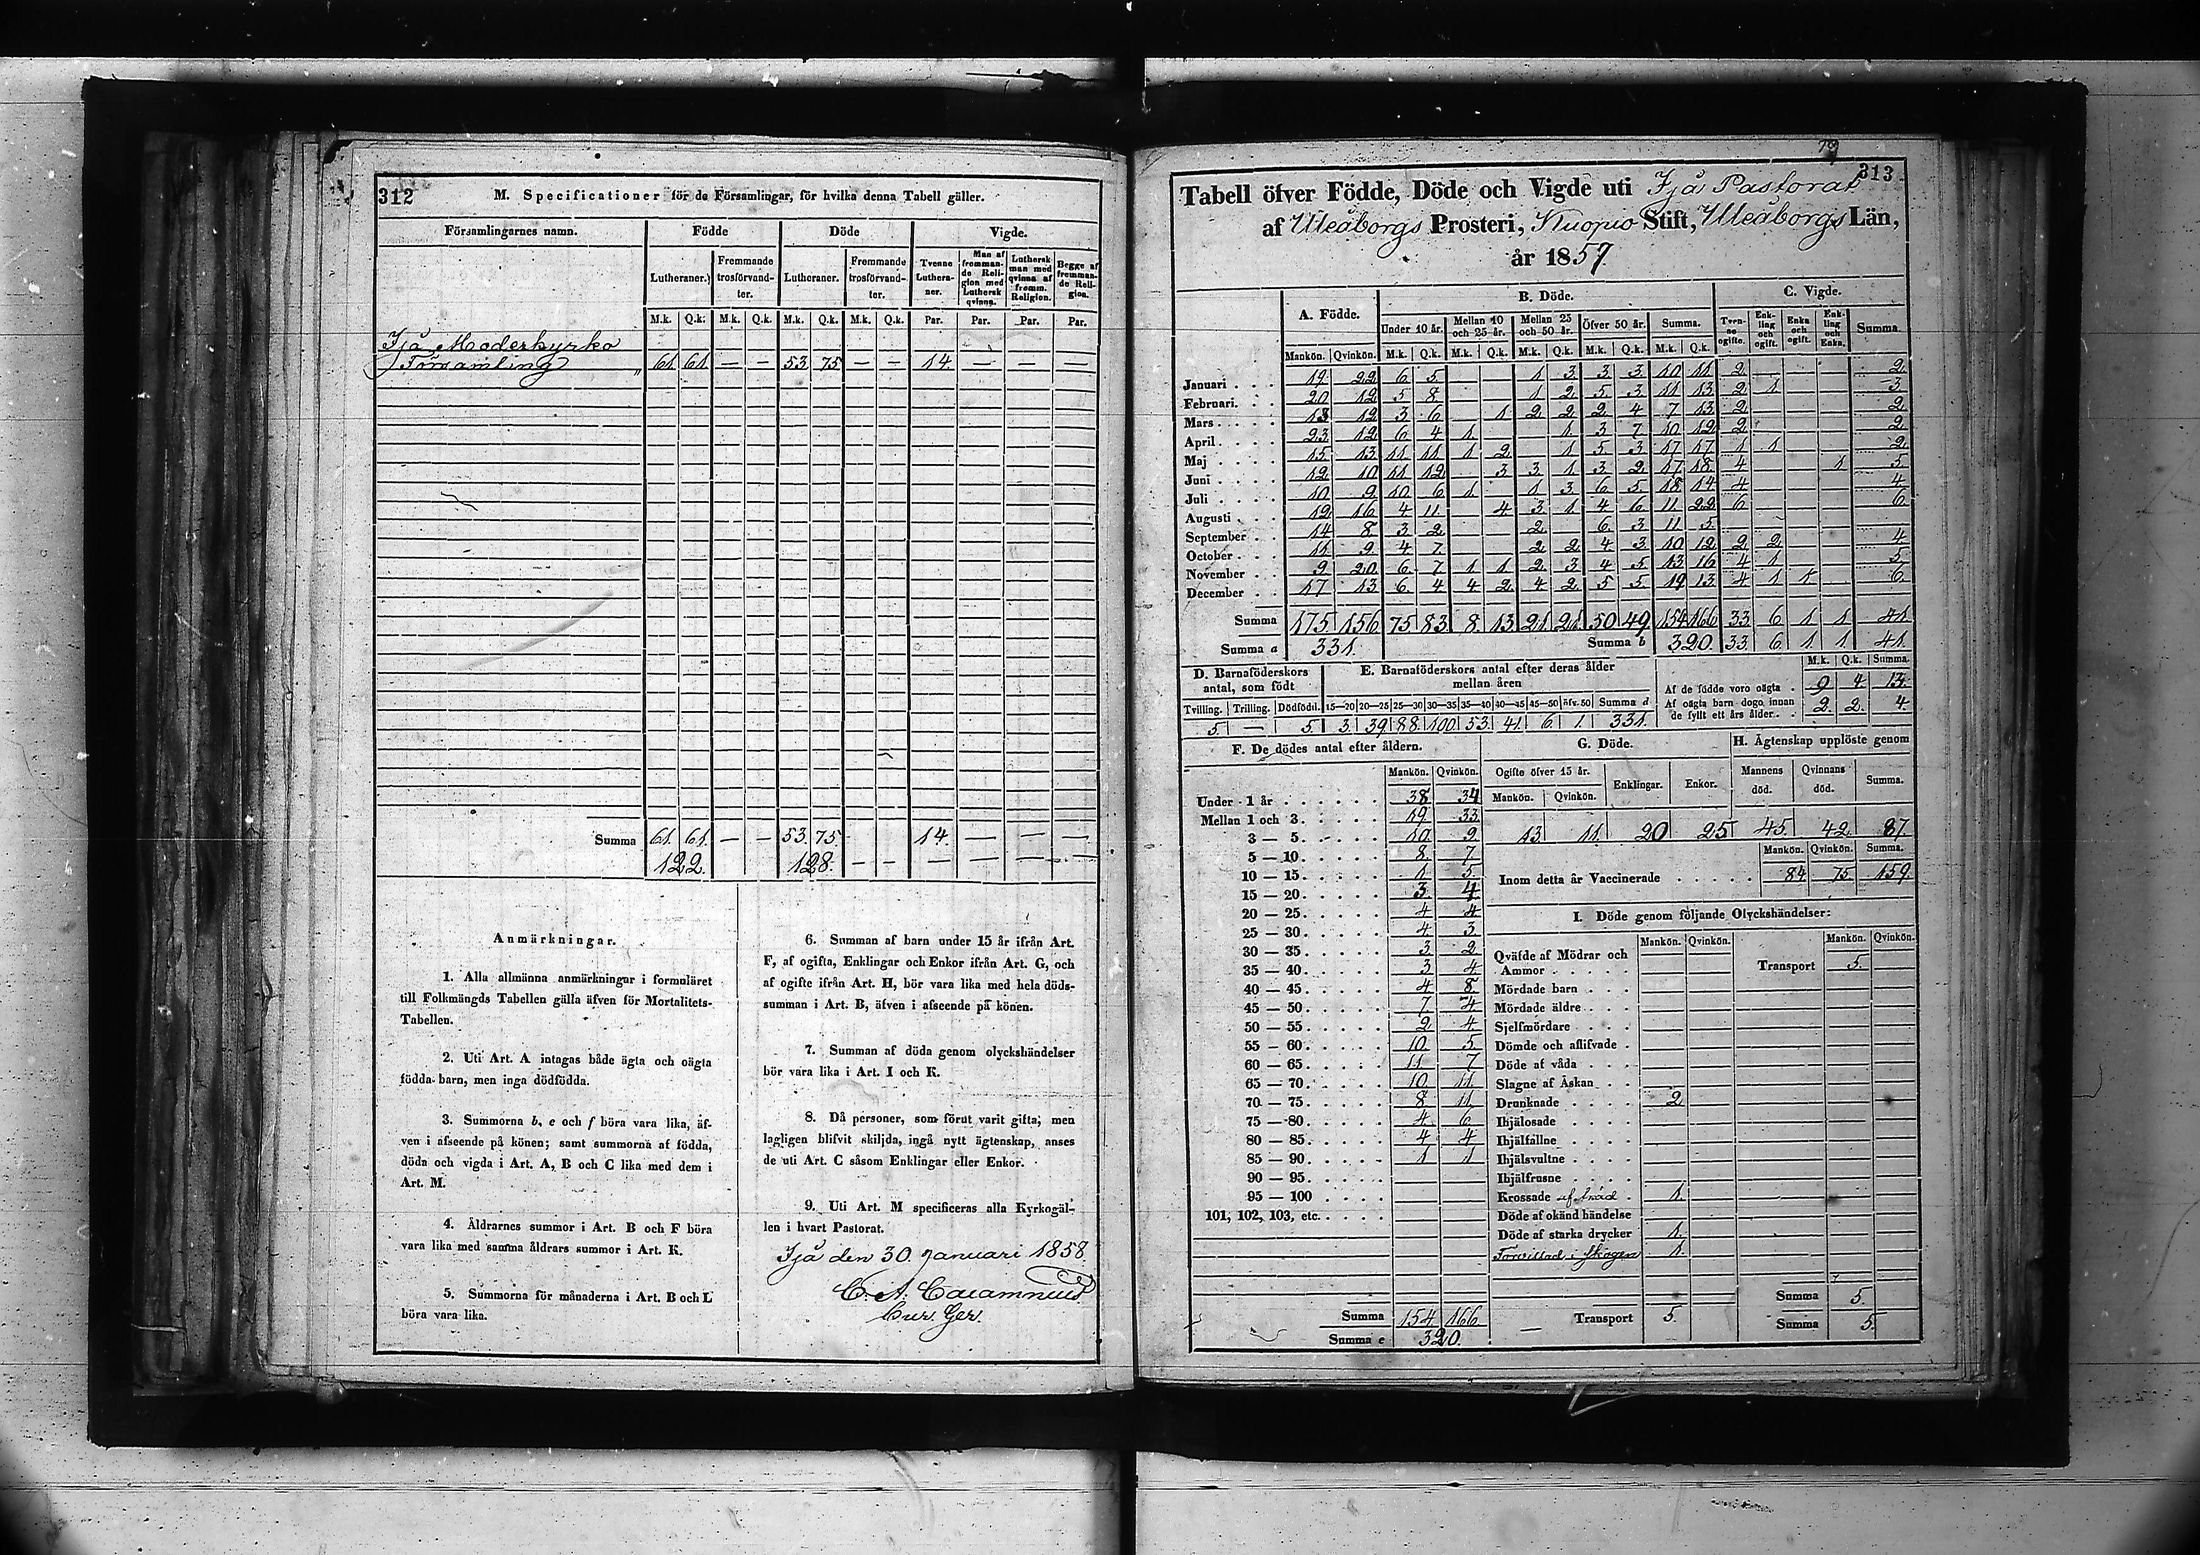 312
M. Specificationer för de Församlingar, för hvilka denna Tabell gäller.
Församlingarnes namn. Födde Döde Vigde.
Lutheraner. Fremmande trosförvandter. Lutheraner. Fremmande trosförvandter. Tvenne Lutheraner. Man af fremmande Religion med Luthersk qvinna. Luthersk man med qvinna af fremm. Religion. Begge af fremmande Religion.
M.k. Q.k. M.k. Q.k. M.k. Q.k. M.k. Q.k. Par. Par. Par. Par.
Ijå Moderkyrko
Församling " 61. 61. — — 53. 75. — — 14. — — —
Summa 61. 61. — — 53. 75. 14. — — —
122. 128. — — — — — —
Anmärkningar.
1. Alla allmänna anmärkningar i formuläret
till Folkmängds Tabellen gälla äfven för Mortalitets-
Tabellen.
2. Uti Art. A intagas både ägta och oägta
födda barn, men inga dödfödda.
3. Summorna b, e och f böra vara lika, äf-
ven i afseende på könen; samt summorna af födda,
döda och vigda i Art. A, B och C lika med dem i
Art. M.
4. Åldrarnes summor i Art. B och F böra
vara lika med samma åldrars summor i Art. K.
5. Summorna för månaderna i Art. B och L
böra vara lika.
6. Summan af barn under 15 år ifrån Art.
F, af ogifta, Enklingar och Enkor ifrån Art. G, och
af ogifte ifrån Art. H, bör vara lika med hela döds-
summan i Art. B, äfven i afseende på könen.
7. Summan af döda genom olyckshändelser
bör vara lika i Art. I och K.
8. Då personer, som förut varit gifta, men
lagligen blifvit skiljda, ingå nytt ägtenskap, anses
de uti Art. C såsom Enklingar eller Enkor.
9. Uti Art. M specificeras alla Kyrkogäl-
len i hvart Pastorat.
Ijå den 30 Januari 1858.
C. A.
Cur. Ger.
79
313.
Tabell öfver Födde, Döde och Vigde uti Ijå Pastorat
af Uleåborgs Prosteri, Kuopio Stift, Uleåborgs Län,
år 1857.
A. Födde. B. Döde. C. Vigde.
Under 10 år. Mellan 10 och 25 år. Mellan 25 och 50 år. Öfver 50 år. Summa. Tvenne ogifte. Enkling och ogift. Enka och ogift. Enkling och Enka. Summa
Mankön. Qvinkön. M.k. Q.k. M.k. Q.k. M.k. Q.k. M.k. Q.k. M.k. Q.k.
Januari . . . 19 22 6 5 1 3 3 3 10 11 2 2
Februari. . . 20 12 5 8 1 2 5 3 11 13 2 1 3
Mars . . . . 13 12 3 6 1 2 2 2 4 7 13 2 2
April . . . . 23 12 6 4 1 1 3 7 10 12 2 2
Maj . . . . 15 13 11 11 1 2 1 5 3 17 17 1 1 2
Juni . . . . 12 10 11 12 3 3 1 3 2 17 18 4 1 5
Juli . . . . 10 9 10 6 1 1 3 6 5 18 14 4 4
Augusti . . . 12 16 4 11 4 3 1 4 6 11 22 6 6
September . . 14 8 3 2 2 6 3 11 5
October . . . 11 9 4 7 2 2 4 3 10 12 2 2 4
November . . 9 20 6 7 1 1 2 3 4 5 13 16 4 1 5
December . . 17 13 6 4 4 2 4 2 5 5 19 13 4 1 1 6
Summa 175 156 75 83 8 13 21 21 50 49 154 166 33 6 1 1 41
Summa a 331. Summa b 320. 33 6 1 1 41
D. Barnaföderskors antal, som födt
E. Barnaföderskors antal efter deras ålder mellan åren
M.k. Q.k. Summa.
Af de födde voro oägta . 9 4 13.
Af oägta barn dogo innan de fyllt ett års ålder . . 2. 2. 4.
Tvilling. Trilling. Dödfödd. 15—20 20—25 25—30 30—35 35—40 40—45 45—50 öfv. 50 Summa d
5. — 5. 3. 39 88 100 53. 41. 6. 1. 331.
F. De dödes antal efter åldern. G. Döde. H. Ägtenskap upplöste genom
Mankön. Qvinkön.
Under 1 år . . . . . . 38 34
Mellan 1 och 3. . . . . . 19 33
3 — 5. . . . . 10 9
5 — 10. . . . . 8 7
10 — 15. . . . . 1 5
15 — 20. . . . . 3 4
20 — 25. . . . . 4 4
25 — 30. . . . . 4 3
30 — 35. . . . . 3 2
35 — 40. . . . . 3 4
40 — 45. . . . . 4 8
45 — 50. . . . . 7 4
50 — 55. . . . . 2 4
55 — 60. . . . . 10 5
60 — 65. . . . . 11 7
65 — 70. . . . . 10 11
70 — 75. . . . . 8 11
75 — 80. . . . . 4 6
80 — 85. . . . . 4 4
85 — 90. . . . . 1 1
90 — 95. . . . .
95 — 100 . . . .
101, 102, 103, etc. . . . .
Summa 154 166
Summa e 320.
Ogifte öfver 15 år. Enklingar. Enkor. Mannens död. Qvinnans död. Summa.
Mankön. Qvinkön.
13. 11. 20 25 45. 42. 87.
Mankön. Qvinkön. Summa.
Inom detta år Vaccinerade . . . . . 84 75 159.
I. Döde genom följande Olyckshändelser:
Mankön. Qvinkön. Mankön. Qvinkön.
Qväfde af Mödrar och
Ammor . . . . . Transport 5.
Mördade barn . . .
Mördade äldre . . .
Sjelfmördare . . . .
Dömde och aflifvade .
Döde af våda . . .
Slagne af Åskan . . .
Drunknade . . . . 2
Ihjälosade . . . .
Ihjälfallne . . . .
Ihjälsvultne . . . .
Ihjälfrusne . . . .
Krossade af träd . 1.
Döde af okänd händelse
Döde af starka drycker 1.
Förvillad i skogen 1.
Summa 5.
Transport 5. Summa 5.